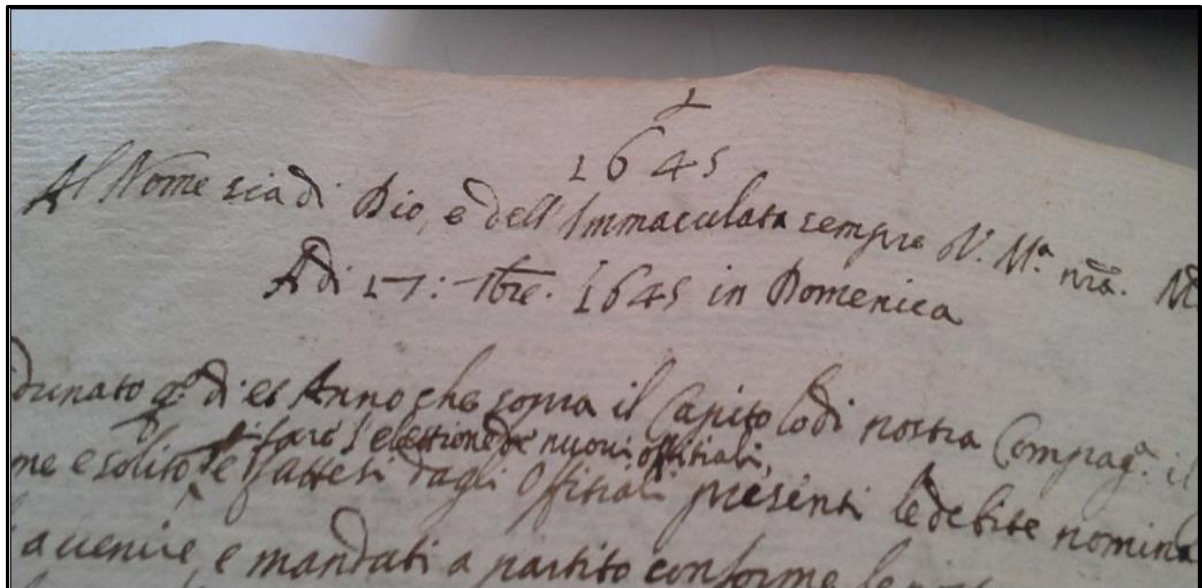 1645
Al Nome sia di Dio, e dell'Immaculata sempre V. M.ª nrã.
Adi 17: 7bre. 1645 in Domenica
dunato q.º di et Anno che sopra il Capitolo di nostra Compag.ª il
fare l'elettione de nuovi offitiali,
me e solito, e fattesi dagli Offitiali presenti le debite nomina
a uenire, e mandati a partito conforme